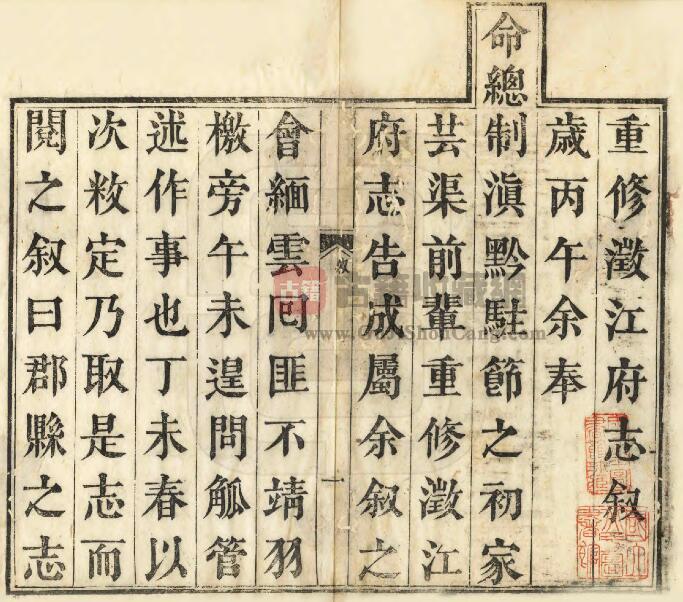 重修澂江府志叙
歲丙午余奉
命總制滇黔駐節之初家
芸渠前輩重修澂江
府志告成屬余叙之
叙
一
會緬雲囘匪不靖羽
檄旁午未遑問觚管
述作事也丁未春以
次敉定乃取是志而
閱之叙曰郡縣之志
古籍
古籍收藏網